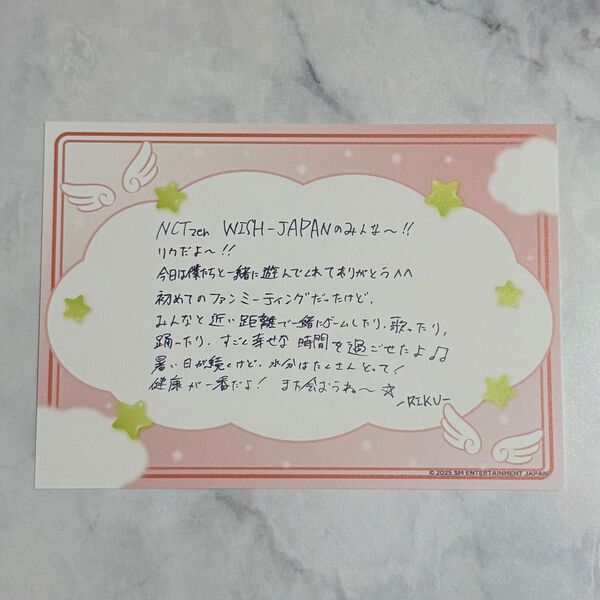 NCTzen WISH-JAPANのみんな〜!!
リクだよ〜!!
今日は僕たちと一緒に遊んでくれてありがとう^^
初めてのファンミーティングだったけど、
みんなと近い距離で一緒にゲームしたり、歌ったり、
踊ったり、すごく幸せな時間を過ごせたよ♫♫
暑い日が続くけど、水分はたくさんとって!
健康が一番だよ! また会おうね〜☆
-RIKU-
© 2025 SM ENTERTAINMENT JAPAN